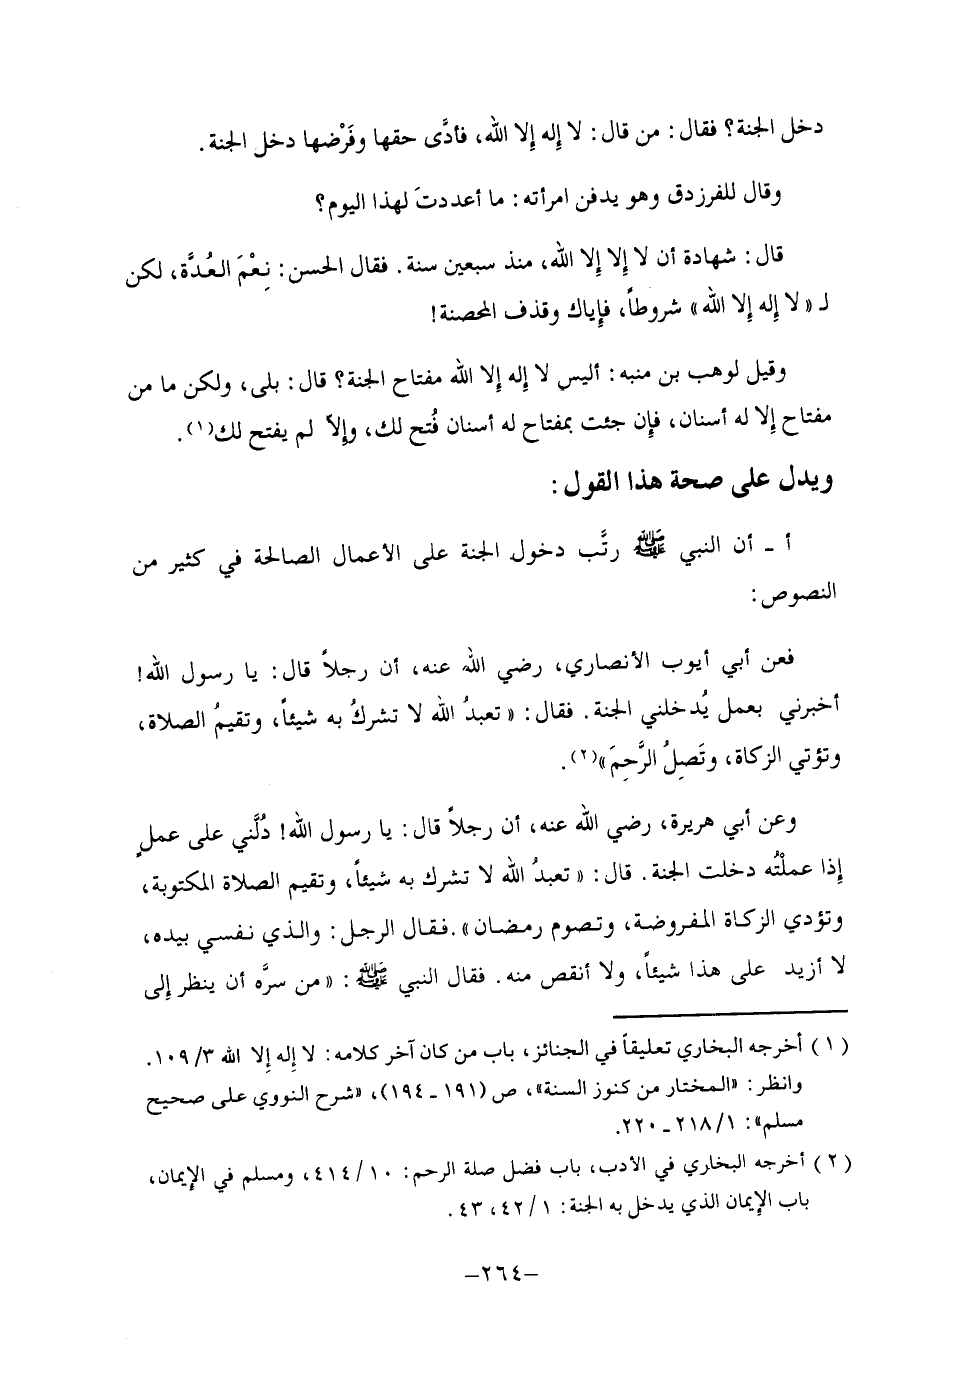 دخل الجنة؟ فقال: من قال: لا إله إلا الله، فأدَّى حقها وفَرْضها دخل الجنة.
وقال للفرزدق وهو يدفن امرأته: ما أعددتَ لهذا اليوم؟
قال: شهادة أن لا إلا إلا الله، منذ سبعين سنة. فقال الحسن: نِعْمَ العُدَّة، لكن
لـ «لا إله إلا الله» شروطاً، فإياك وقذف المحصنة!
وقيل لوهب بن منبه: أليس لا إله إلا الله مفتاح الجنة؟ قال: بلى، ولكن ما من
مفتاح إلا له أسنان، فإن جئت بمفتاح له أسنان فُتح لك، وإلاّ لم يفتح لك(١).
ويدل على صحة هذا القول:
أ ـ أن النبي ﷺ رتَّب دخول الجنة على الأعمال الصالحة في كثير من
النصوص:
فعن أبي أيوب الأنصاري، رضي الله عنه، أن رجلاً قال: يا رسول الله!
أخبرني بعمل يُدخلني الجنة. فقال: «تعبدُ الله لا تشركُ به شيئاً، وتقيمُ الصلاة،
وتؤتي الزكاة، وتَصِلُ الرَّحِمَ»(٢).
وعن أبي هريرة، رضي الله عنه، أن رجلاً قال: يا رسول الله! دُلَّني على عملٍ
إذا عملْتُه دخلت الجنة. قال: «تعبدُ الله لا تشرك به شيئاً، وتقيم الصلاة المكتوبة،
وتؤدي الزكاة المفروضة، وتصوم رمضان».فقال الرجل: والذي نفسي بيده،
لا أزيد على هذا شيئاً، ولا أنقص منه. فقال النبي ﷺ: «من سرَّه أن ينظر إلى
(١) أخرجه البخاري تعليقاً في الجنائز، باب من كان آخر كلامه: لا إله إلا الله ١٠٩/٣.
وانظر: «المختار من كنوز السنة»، ص (١٩١ ـ ١٩٤)، «شرح النووي على صحيح
مسلم»: ٢١٨/١ ـ ٢٢٠.
(٢) أخرجه البخاري في الأدب، باب فضل صلة الرحم: ٤١٤/١٠، ومسلم في الإيمان،
باب الإيمان الذي يدخل به الجنة: ٤٢/١، ٤٣.
–٢٦٤–